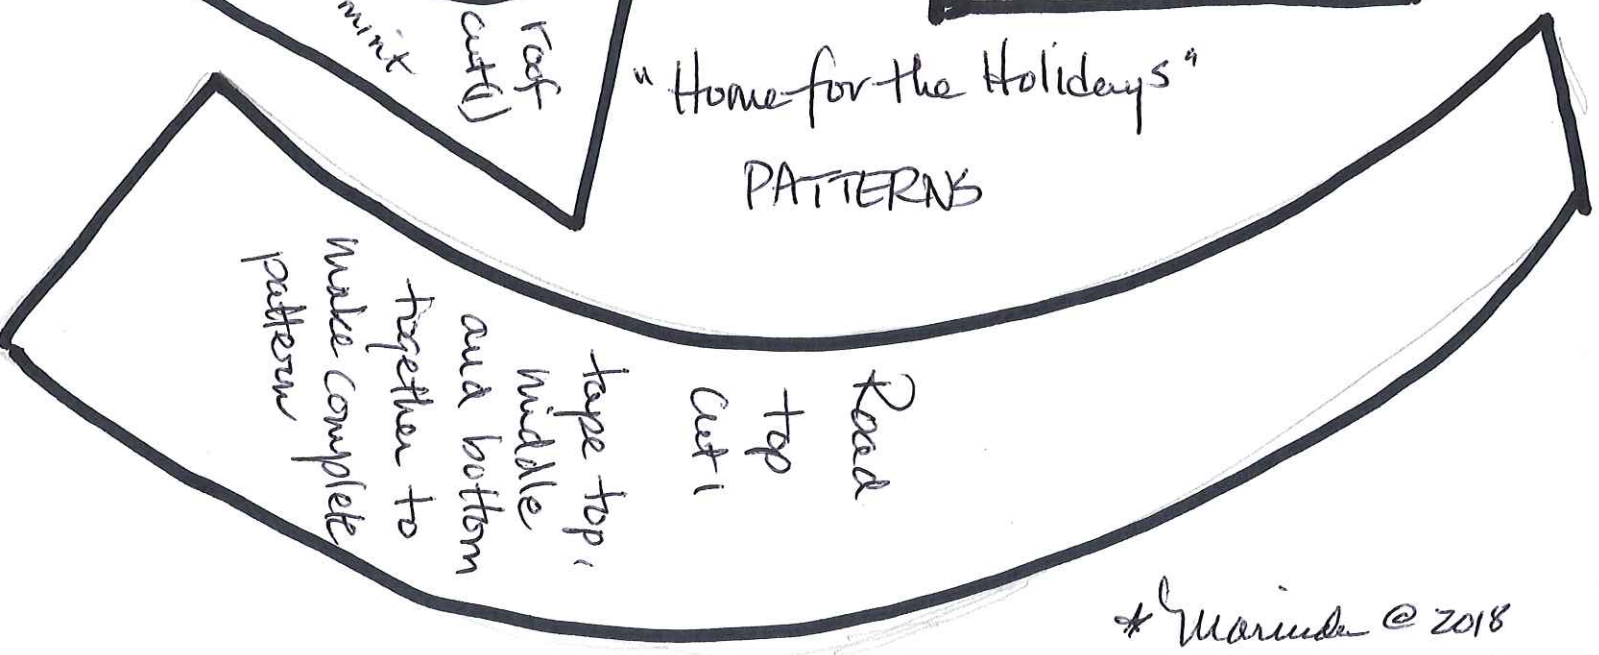 roof
cut (1)
mint
"Home for the Holidays"
PATTERNS
Road
top
cut 1
tape top,
middle
and bottom
together to
make complete
pattern
*Marinda @ 2018